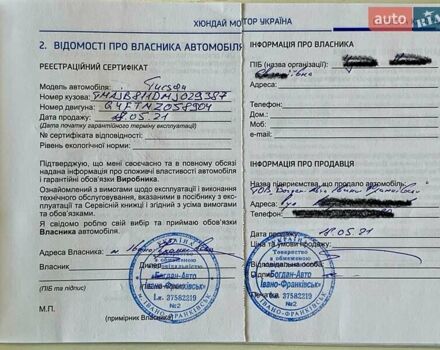 ХЮНДАЙ МОТОР УКРАЇНА
auto
RIA
2. ВІДОМОСТІ ПРО ВЛАСНИКА АВТОМОБІЛЯ
РЕЄСТРАЦІЙНИЙ СЕРТИФІКАТ
Модель автомобіля: Tucson
Номер кузова:
Номер двигуна:
Дата продажу: 18.05.21
(Дата початку гарантійного терміну експлуатації)
№ сертифіката відповідності:
Рівень екологічної норми:
Підтверджую, що мені своєчасно та в повному обсязі
надана інформація про споживчі властивості автомобіля
і гарантійні обов'язки Виробника.
Ознайомлений з вимогами щодо експлуатації і виконання
технічного обслуговування, вказаними в посібнику з експлуатації
та Сервісній книжці і згідний з усіма вимогами та
обов'язками.
Я свідомо роблю свій вибір та приймаю обов'язки
Власника автомобіля.
Адреса Власника:
Власник Дилер
(ПІБ та підпис)
М.П.
(примірник Власника)
ІНФОРМАЦІЯ ПРО ВЛАСНИКА
ПІБ (назва організації):
Адреса:
Телефон:
Дом:
Моб:
e-mail:
ІНФОРМАЦІЯ ПРО ПРОДАВЦЯ
Назва підприємства, що продало автомобіль:
Адреса:
Телефон:
Дата продажу: 18.05.21
Ціна та умови продажу:
Відповідальна особа
Підпис
Печатка
УКРАЇНА
Товариство
з обмеженою
відповідальністю
"Богдан-Авто
Івано-Франківськ"
І.к. 37582219
№2
м. ІВАНО-ФРАНКІВСЬК
УКРАЇНА
Товариство
з обмеженою
відповідальністю
"Богдан-Авто
Івано-Франківськ"
І.к. 37582219
№2
м. ІВАНО-ФРАНКІВСЬК